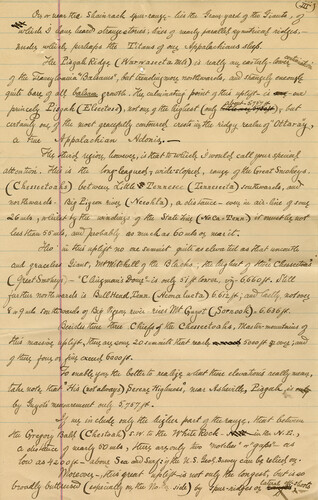 III
On or near the Shamrock spur-range - lies the Graveyard of the Giants, of
which I have heard strange stories; base of nearly parallel symetrical ridges.
under which, perhaps the Titans of our Appalachians sleep.
The Pisgah Ridge (Warwasseeta Mts) is really an easterly continuation
of the Transylvania "Balsams", but trending more northwards, and strangely enough
quite bare of all balsam growth. The culminating point of this uplift is our
princely Pisgah (Elseetos), not one of the highest (only about 5757 ft), but
certainly one of the most gracefully contoured crests in the ridgy realm of "Ottaray,
a true Appalachian Adonis.
The third region, however, is that to which I would call your special
attention. This is the long-leagued, wide-sloped, range of the Great Smokeys
(Cheseetoahs) between Little Tennessee (Tennasseeta) southwards, and
northwards - Big Pigeon River a distance - even in air-line of some
26 mls, whilst by the windings of the State line it must be not
less than 55 mls, and probably as much as 60 mls or more it.
Tho' in this uplift no one summit quite as elevated as that uncouth
and graceless Giant, Mt Mitchell of the Blacks, the highest of this Cheseetoa
(Great Smokey) - "Clingman's Dome" - is only 51 ft lower viz 6660 ft. Still
further northwards is Bull Head 6612 ft, and lastly, not over
8 or 9 mls north to Big Pigeon river rises Mt Guyot (Sornook), 6636 ft
Besides these three Chiefs of the Cheseetoahs, Master-mountains of
this massive uplift, there are some 20 summits that reach 5000 ft or over; and
of these four or five exceed 6000 ft.
To enable you the better to realize what these elevations really mean,
take note that "His (not always) Serene Highness", near Asheville, Pisgah, is only
by Guyot's measurement only 5,757 ft.
If we include only the higher part of the range, that between
the Gregory Bald S.W. to the White Rock in the N.E.,
a distance of nearly 50 mls, there are only two "notches" or "gaps" as
low as 4500 ft above Sea and Surely the U.S. Geol. Survey can be relied on
Moreover, this great uplift is not only the longest, but is so
broadly buttressed (especially on the side) by spur-ridges or lateral offshoots